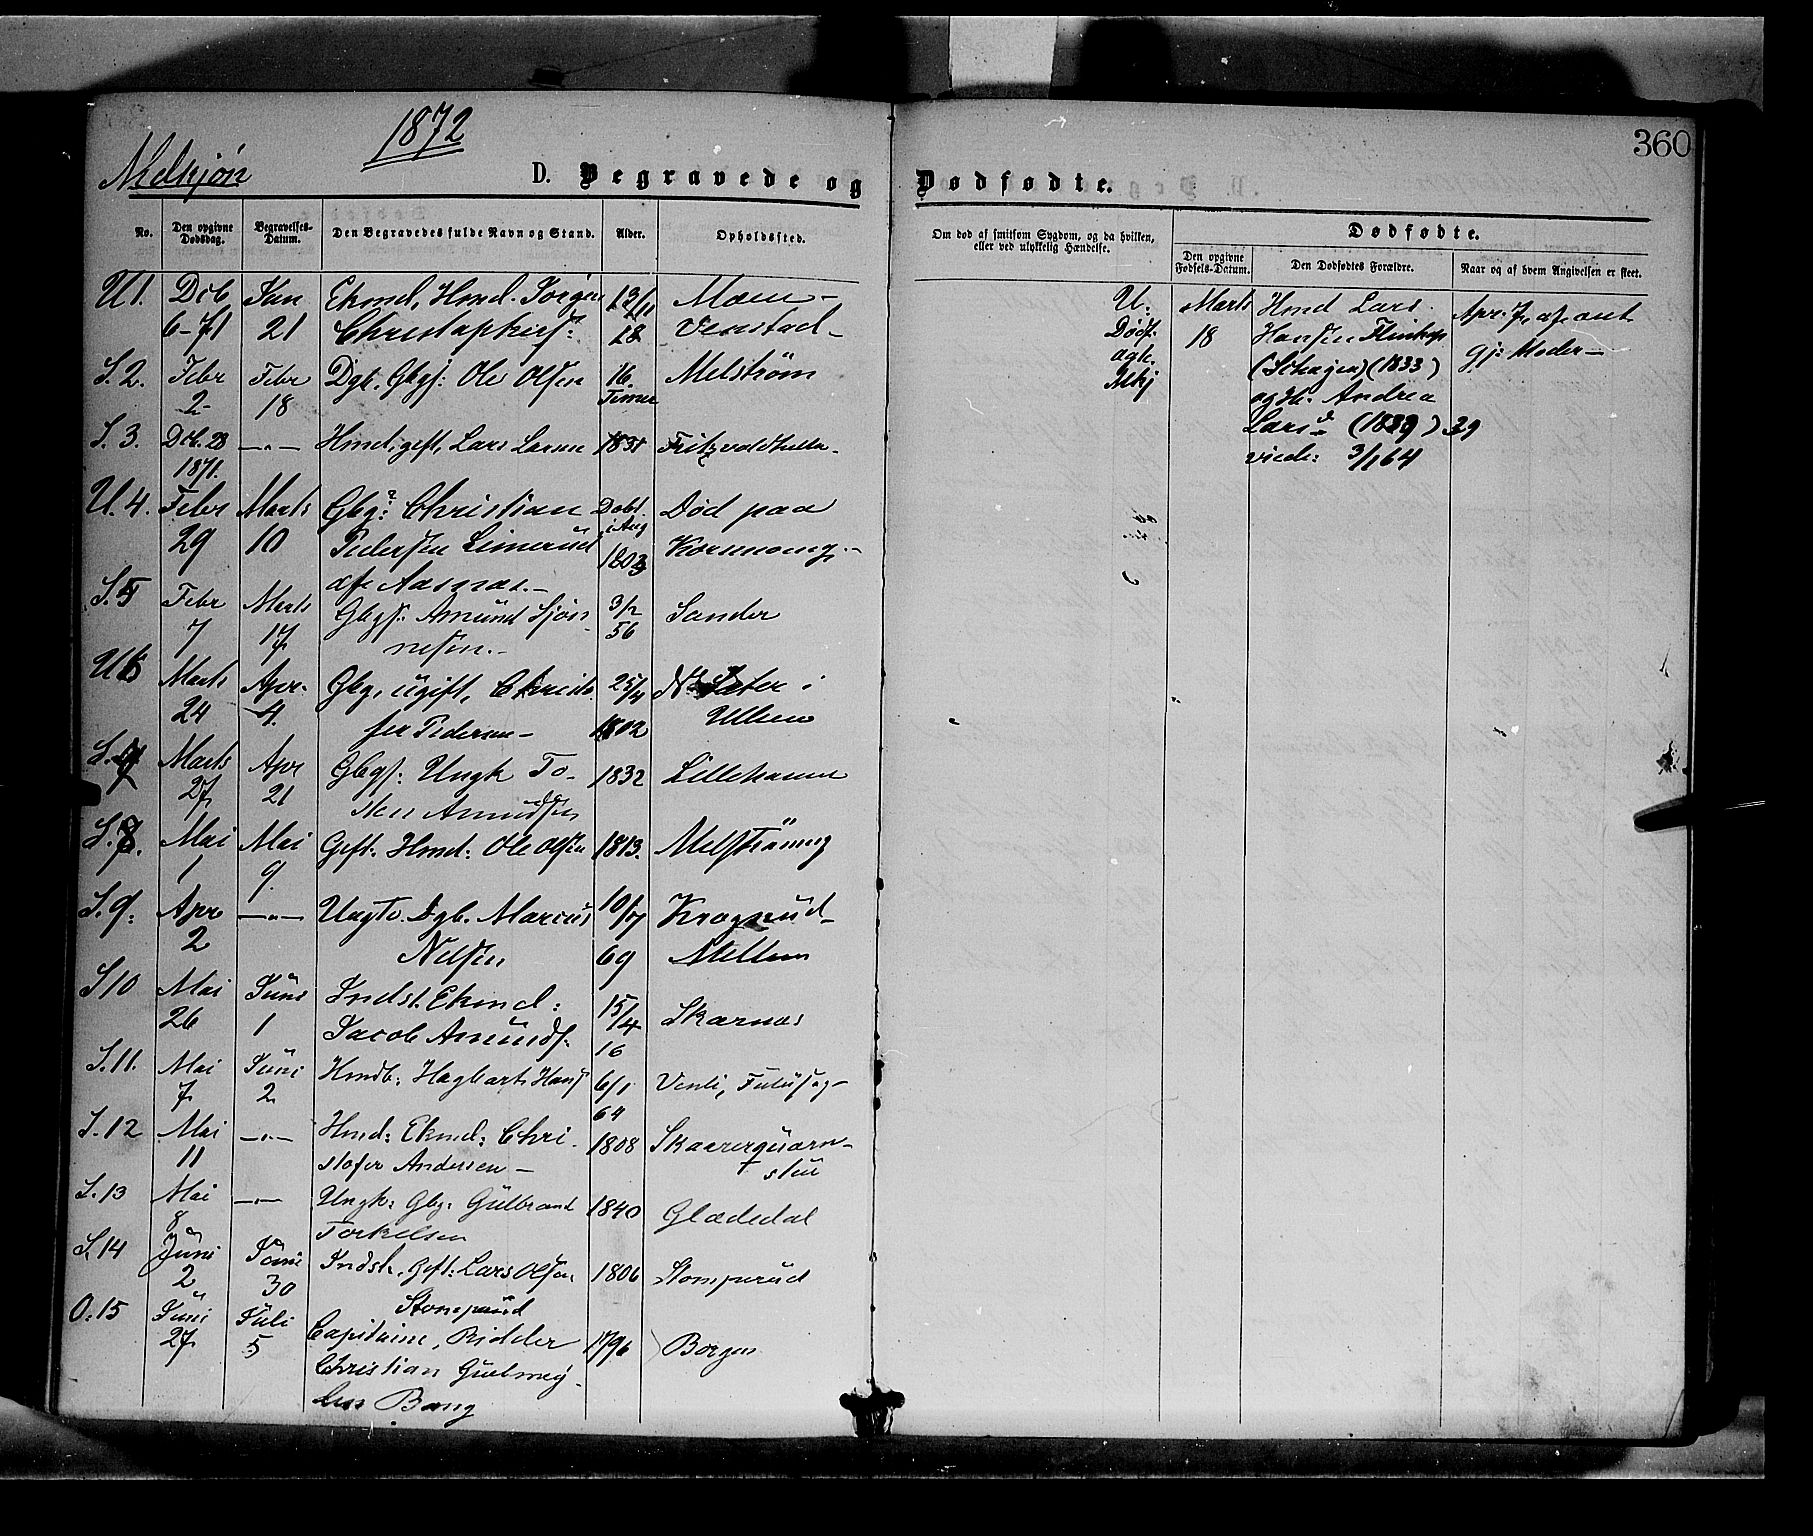 1872
360
Melkjøn
D. Begravede og Dødfødte.
No.
Den opgivne Dødsdag.
Begravelses-Datum.
Den Begravedes fulde Navn og Stand.
Alder.
Opholdssted.
Om død af smitsom Sygdom, og da hvilken, eller ved ulykkelig Hændelse.
Dødfødte.
Den opgivne Fødsels-Datum.
Den Dødfødtes Forældre.
Naar og af hvem Angivelsen er skeet.
U 1. Dcb Jan Ekmd, Hmd. Jørgen 13/11
6-71 21 Christophers: 28 Venstad-
S. 2. Febr Febr Dgb, Gbgs: Ole Olsen 16 Melstrøm
2 18 Timer
S. 3. Dcb. 28 -"- Hmd, gift, Lars Larsen 1831
1871.
U. 4. Febr Marts Gbg: Christian Døbt Død paa
29 10 Pedersen Limerud i Aug
af Aasnæs.- 1803
S. 5 Febr Marts Gbgs: Amund 3/2 Sander
7 17 56
U 6 Marts Apr. Gbg, ugift, Christo 25/4 Sæter i
24 4. fer Pedersen- 1802 Ullern
S. 7 Marts Apr Gbgs: Ungk To- 1832 Lillehamer
27 21 sten Amundsen
S. 8. Mai Mai Gift. Hmd: Ole Olsen 1813.
1 9.
S. 9. Apr -"- Ungk. Dgb. Marcus 10/7 Kragsrud-
2 Nilsen 69 Mellem
S 10 Mai Juni Indst. Ekmd: 15/4 Skarnæs
26 1 Jacob Amunds: 16
S. 11. Mai Juni Hmdb: Hagbart Hans 6/1 Venli,
7 2 64
S. 12 Mai -"- Hmd: Ekmd: Chri- 1808
11 stofer Andersen- stue
S. 13 Mai -"- Ungk: Gbg: Gulbrand 1840 Glædedal
8 Torkelsen
S. 14 Juni Juni Indst. Gift: Lars Olsen 1806 Stomperud
2 30 Stomperud
O. 15 Juni Juli Capitaine, Ridder 1796 Borgen
27 5 Christian
Bang
U: Marts Hmd Lars Apr. 7, af ant
Dødf. 18 Hansen gj: Moder-
agk. (1833)
Mkj og H: Andrea
Larsd (1839) 39
viede: 3/1 64